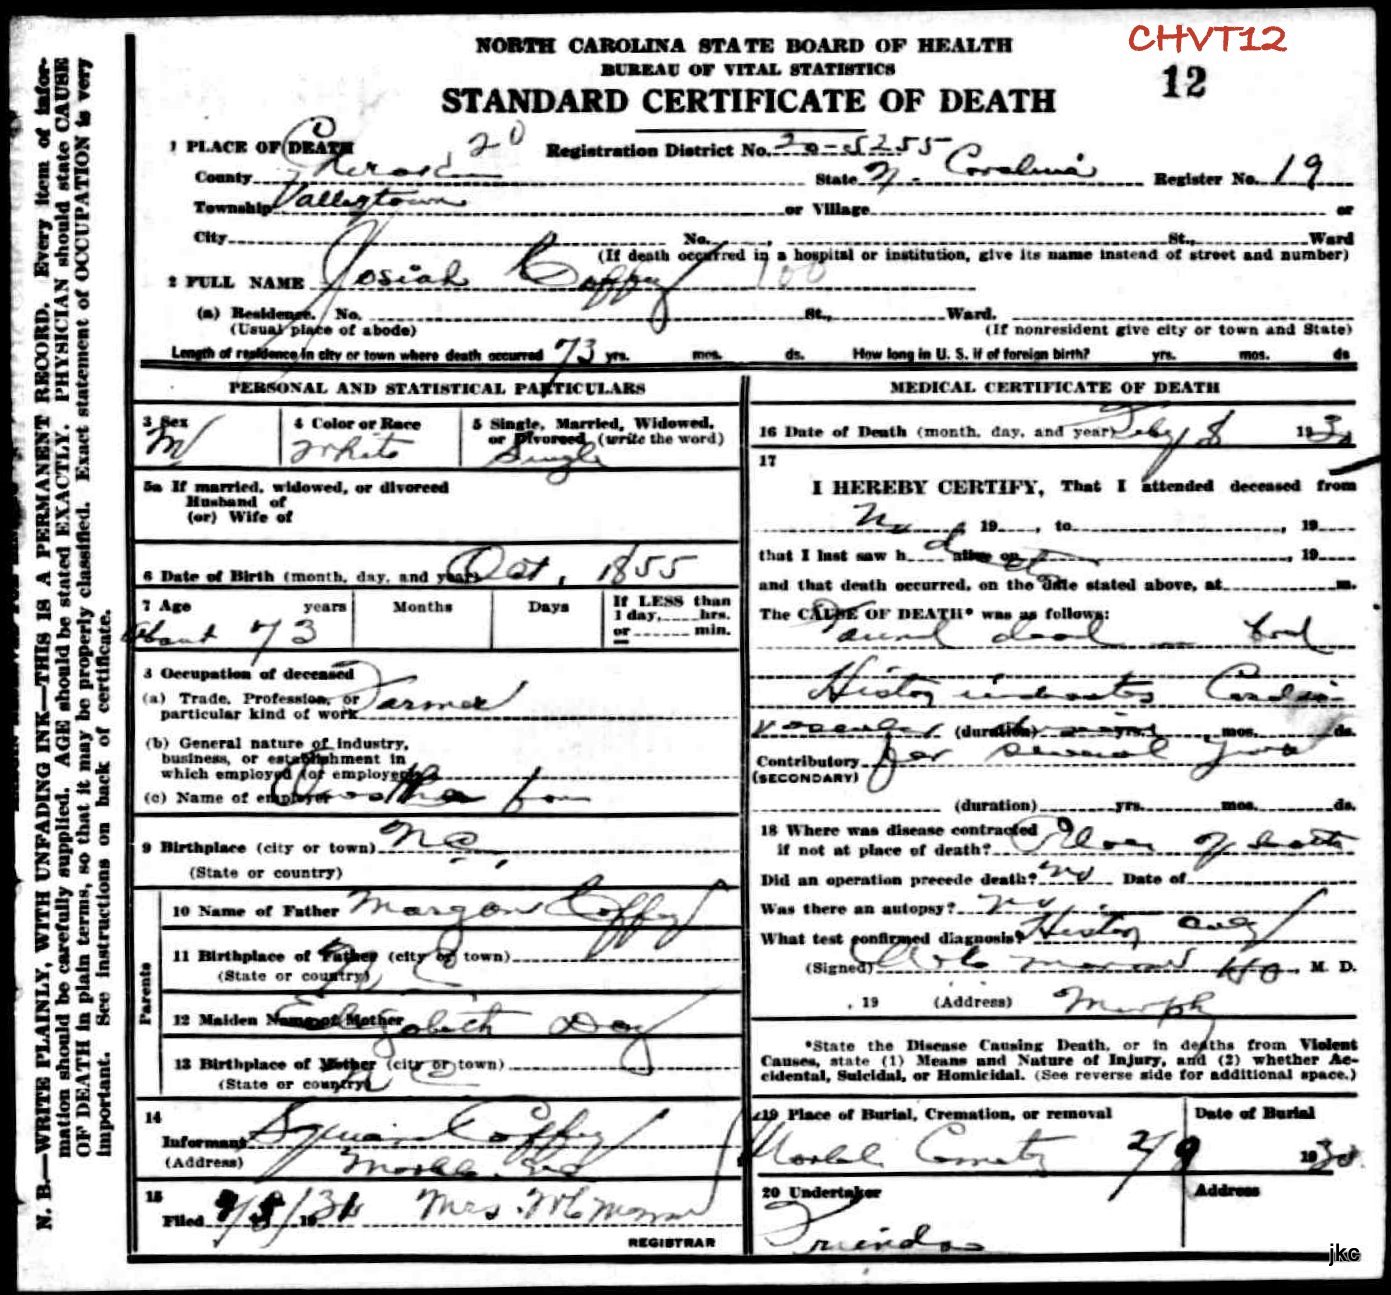 CHVT12
NORTH CAROLINA STATE BOARD OF HEALTH
BUREAU OF VITAL STATISTICS
12
STANDARD CERTIFICATE OF DEATH
1 PLACE OF DEATH 20 Registration District No. 20-5255
County Cherokee State N. Carolina Register No. 19
Township Valleytown or Village or
City No. , St., Ward
(If death occurred in a hospital or institution, give its name instead of street and number)
2 FULL NAME Josiah Coffey 100
(a) Residence. No. St., Ward.
(Usual place of abode) (If nonresident give city or town and State)
Length of residence in city or town where death occurred 73 yrs. mos. ds. How long in U. S. if of foreign birth? yrs. mos. ds
PERSONAL AND STATISTICAL PARTICULARS
3 Sex 4 Color or Race 5 Single, Married, Widowed,
or Divorced (write the word)
M White Single
5a If married, widowed, or divorced
Husband of
(or) Wife of
6 Date of Birth (month, day, and year) Oct, 1855
7 Age years Months Days If LESS than
1 day, hrs.
About 73 or min.
8 Occupation of deceased
(a) Trade, Profession, or
particular kind of work Farmer
(b) General nature of industry,
business, or establishment in
which employed (or employer)
(c) Name of employer
9 Birthplace (city or town) NC
(State or country)
Parents
10 Name of Father Morgan Coffey
11 Birthplace of Father (city or town)
(State or country) N C
12 Maiden Name of Mother Elizabeth
13 Birthplace of Mother (city or town)
(State or country) N C
14
Informant Squire Coffey
(Address) Marble NC
15
Filed 19 Mrs. W C
REGISTRAR
MEDICAL CERTIFICATE OF DEATH
16 Date of Death (month, day, and year) Feby 8 1930
17
I HEREBY CERTIFY, That I attended deceased from
No 19 , to , 19
that I last saw h alive on , 19
and that death occurred, on the date stated above, at m.
The CAUSE OF DEATH* was as follows:
Found dead in bed
History indicates Cardio
vascular (duration) yrs. mos. ds.
Contributory for several years
(SECONDARY)
(duration) yrs. mos. ds.
18 Where was disease contracted
if not at place of death? Place of death
Did an operation precede death? No Date of
Was there an autopsy? No
What test confirmed diagnosis? History only
(Signed) M. D.
, 19 (Address) Murphy
*State the Disease Causing Death, or in deaths from Violent
Causes, state (1) Means and Nature of Injury, and (2) whether Ac-
cidental, Suicidal, or Homicidal. (See reverse side for additional space.)
19 Place of Burial, Cremation, or removal Date of Burial
Marble Cemetery 2/9 1930
20 Undertaker Address
Friends
N. B.—WRITE PLAINLY, WITH UNFADING INK—THIS IS A PERMANENT RECORD. Every item of infor-
mation should be carefully supplied. AGE should be stated EXACTLY. PHYSICIAN should state CAUSE
OF DEATH in plain terms, so that it may be properly classified. Exact statement of OCCUPATION is very
important. See instructions on back of certificate.
jkc